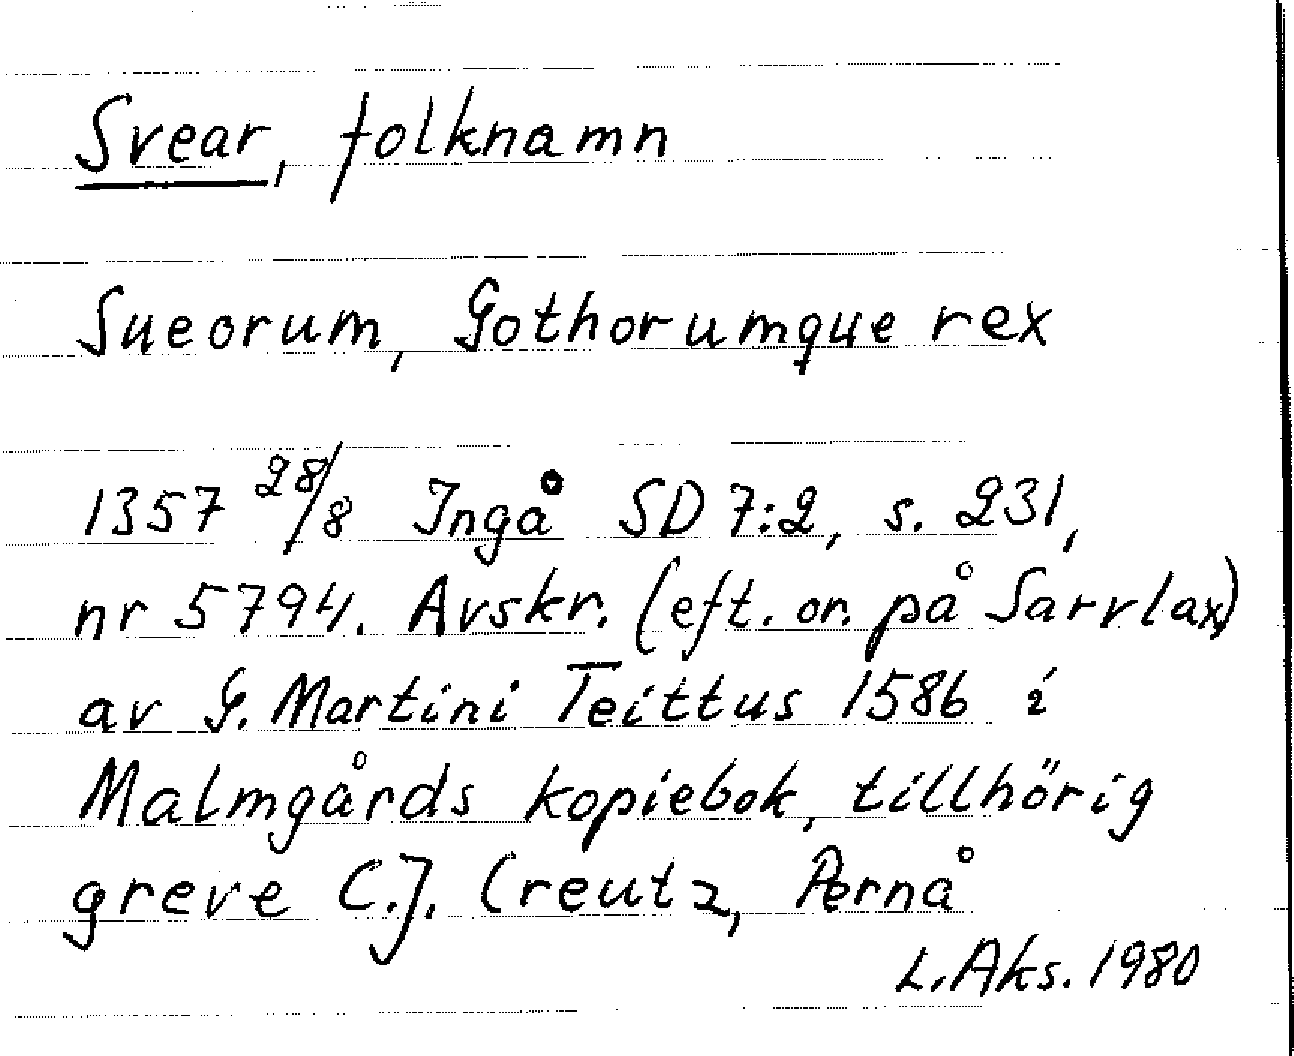 Svear, folknamn
Sueorum, Gothorumque rex
1357 28/8 Ingå SD 7:2, s. 231,
nr 5794. Avskr. (eft. or. på Sarvlax)
av G. Martini Teittus 1586 i
Malmgårds kopiebok, tillhörig
greve C.J. Creutz, Pernå
L. Aks. 1980